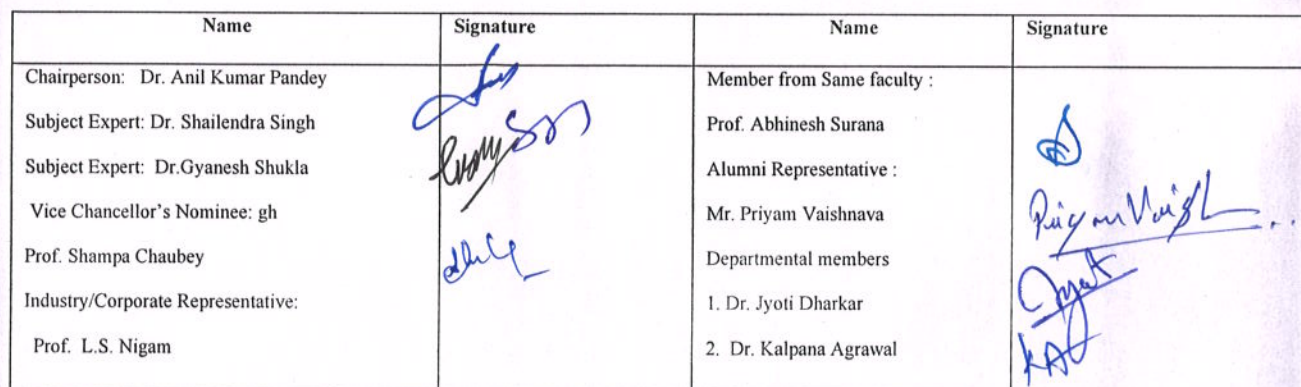 Name Signature Name Signature
Chairperson: Dr. Anil Kumar Pandey Member from Same faculty :
Subject Expert: Dr. Shailendra Singh Prof. Abhinesh Surana
Subject Expert: Dr.Gyanesh Shukla Alumni Representative :
Vice Chancellor's Nominee: gh Mr. Priyam Vaishnava
Prof. Shampa Chaubey Departmental members
Industry/Corporate Representative: 1. Dr. Jyoti Dharkar
Prof. L.S. Nigam 2. Dr. Kalpana Agrawal